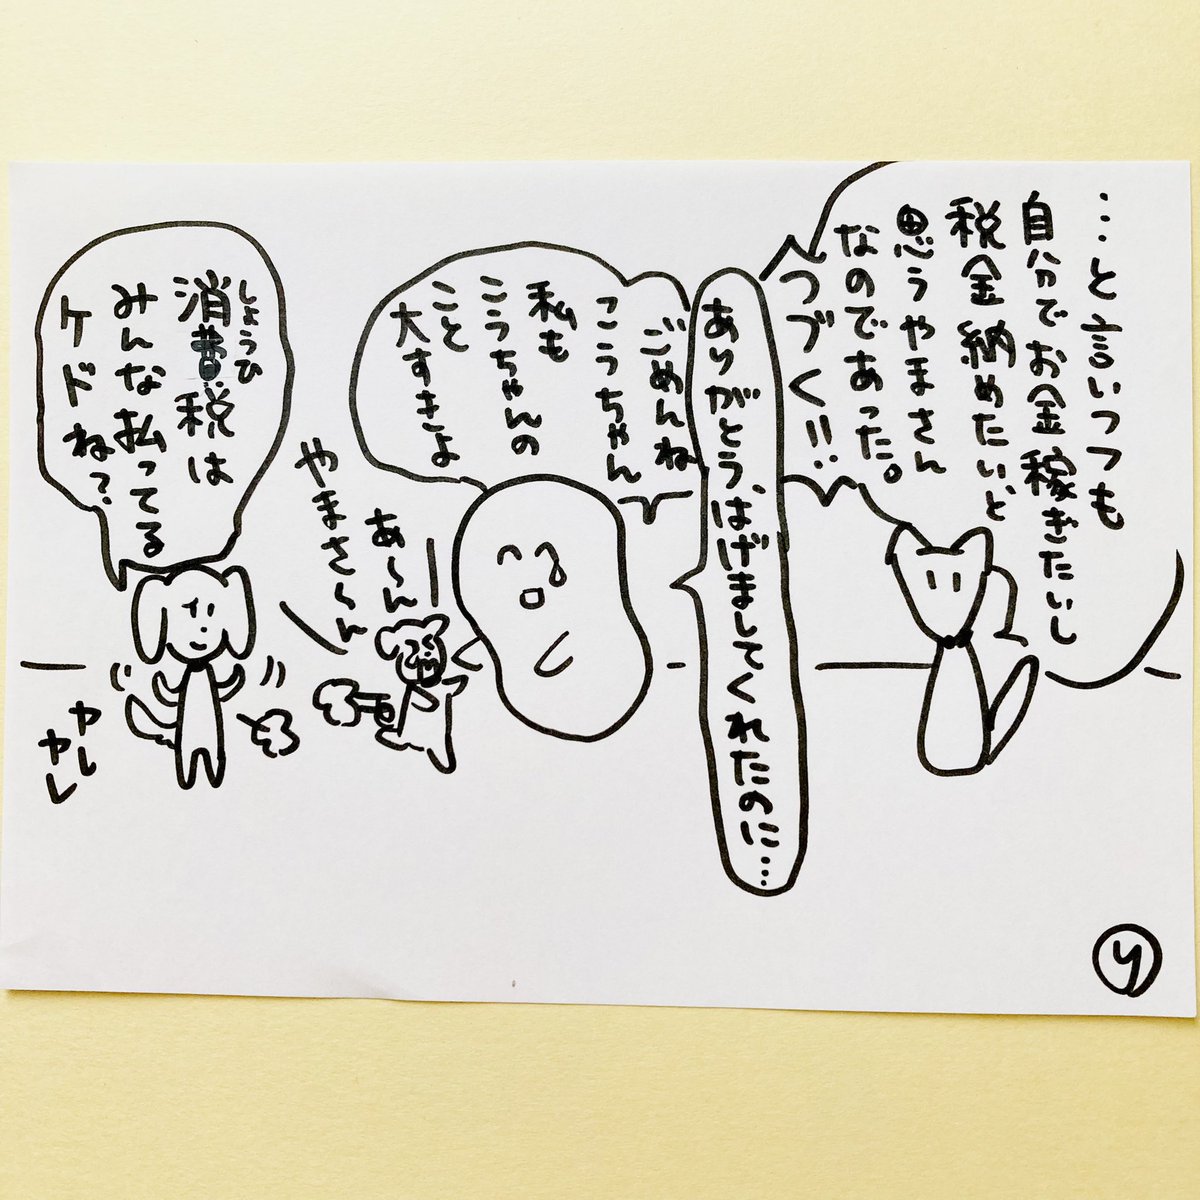 …と言いつつも
自分でお金稼ぎたいし
税金納めたいと
思うやまさん
なのであった。
つづく!!
ありがとう、はげましてくれたのに…
ごめんね
こうちゃん
私も
こうちゃんの
こと
大すきよ
あ〜ん
やまさ〜ん
しょうひ
消費税は
みんな払ってる
ケドね?
ヤレ
ヤレ
y